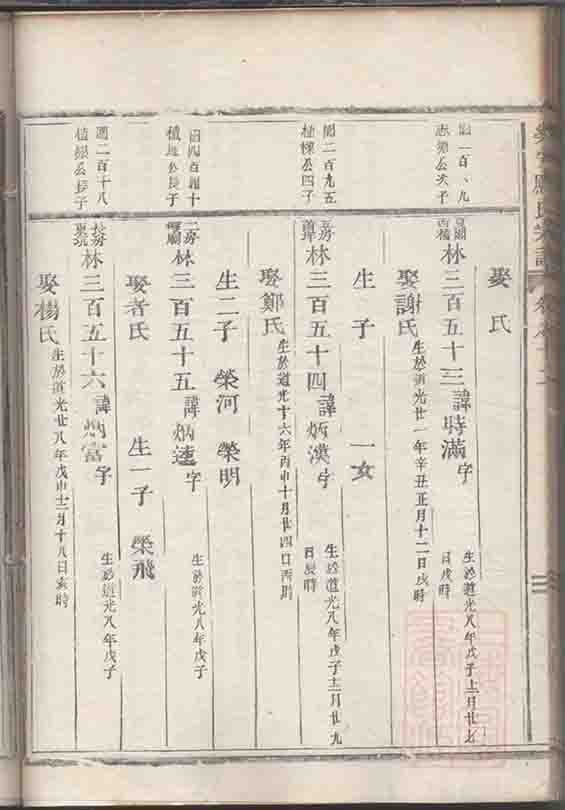 娶氏
林三百五十三諱時滿字
生於道光八年戊子十一月廿七
日戌時
娶謝氏
生於道光廿一年辛丑正月十二日戌時
生子 一女
植樑公四子
林三百五十四諱炳漢字
生於道光八年戊子十二月廿九
日辰時
娶鄭氏
生於道光十六年丙申十月廿四日丙時
生二子 榮河 榮明
林三百五十五諱炳蓮字
生於道光八年戊子
娶者氏 生一子 榮飛
圖二百十八
林三百五十六諱炳富字
生於道光八年戊子
娶楊氏
生於道光廿八年戊申十二月十八日亥時